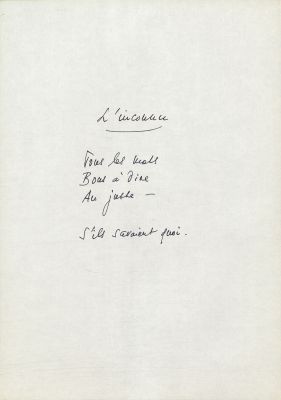 L'inconnu
Tous les mots
Bons à dire
Au juste —
S'ils savaient quoi.